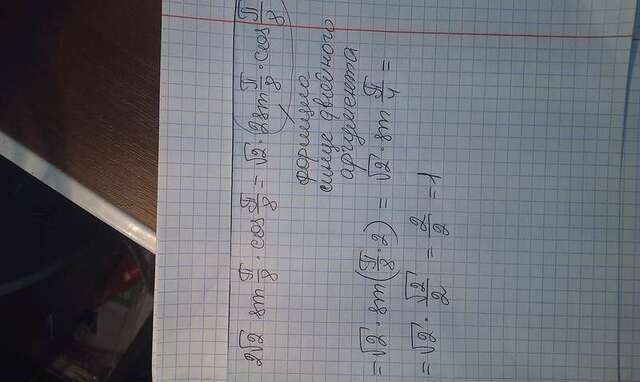 2√2 sin π/8 · cos π/8 = √2 · 2sin π/8 · cos π/8
формула
синус двойного
аргумента
= √2 · sin(π/8 · 2) = √2 · sin π/4 =
= √2 · √2/2 = 2/2 = 1